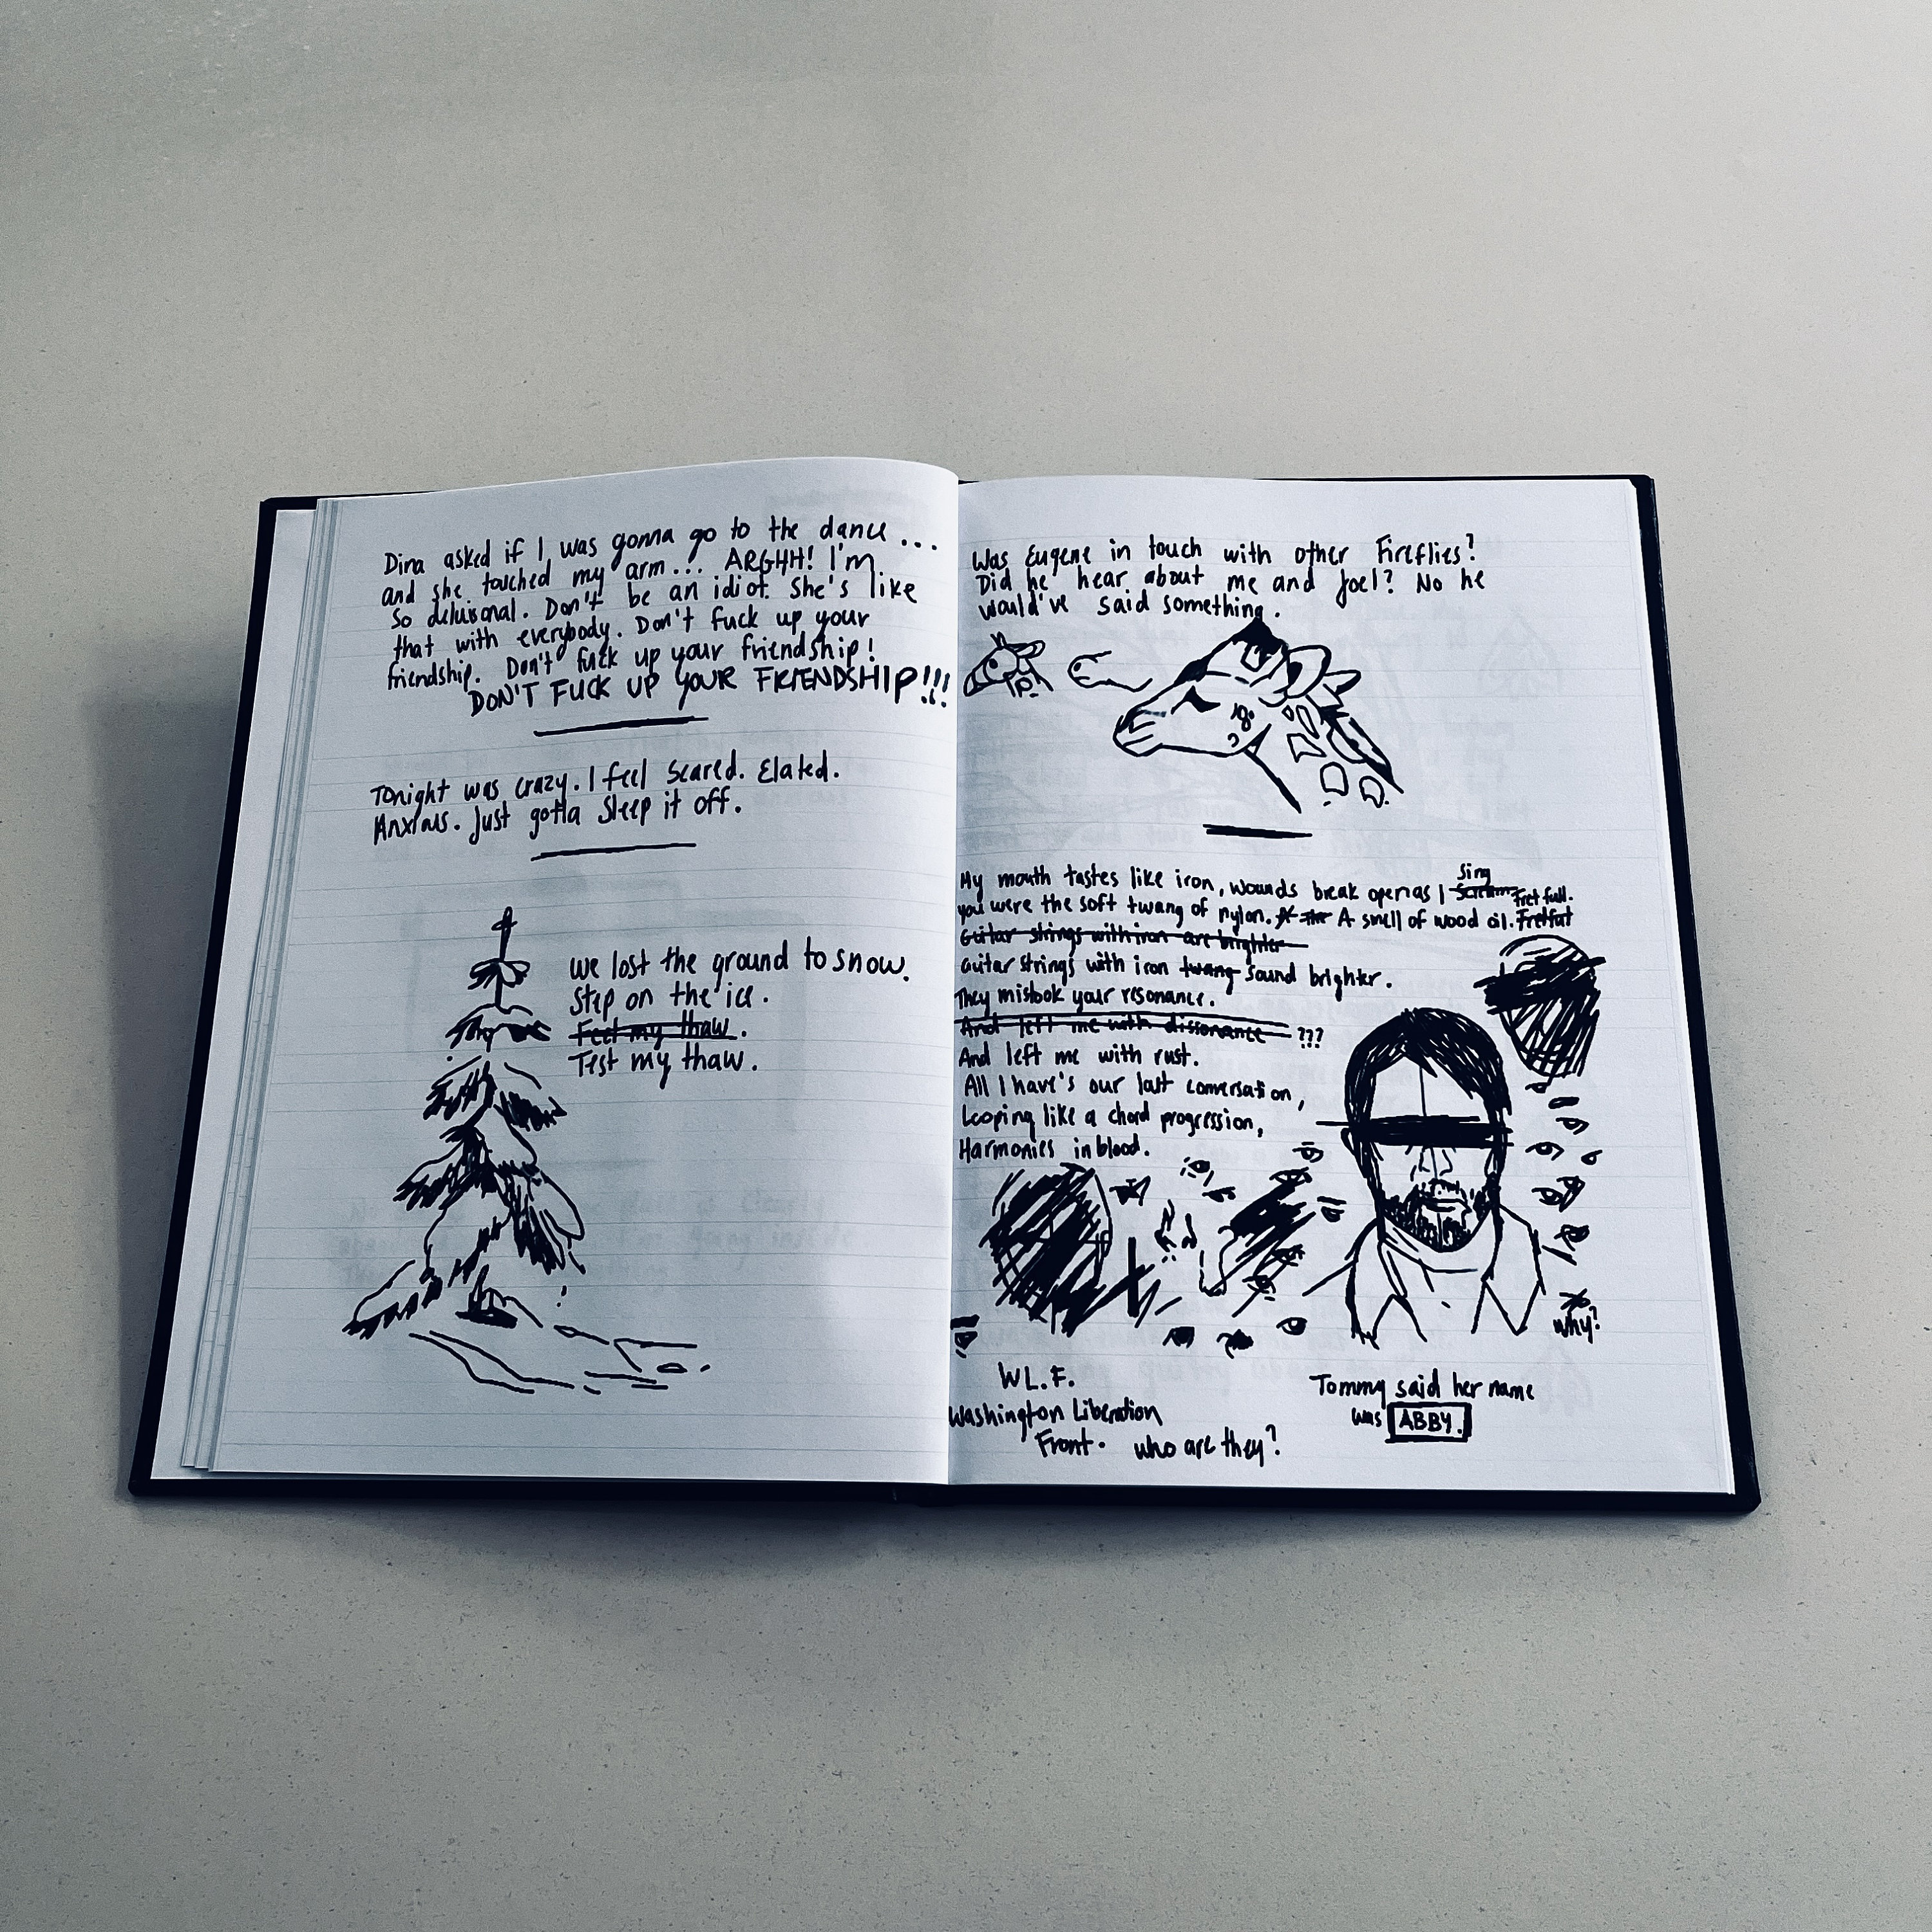 Dina asked if I was gonna go to the dance...
and she touched my arm... ARGHH! I'm
so delusional. Don't be an idiot. She's like
that with everybody. Don't fuck up your
friendship. Don't fuck up your friendship!
DON'T FUCK UP YOUR FRIENDSHIP!!!
Tonight was crazy. I feel scared. Elated.
Anxious. Just gotta sleep it off.
We lost the ground to snow.
Step on the ice.
Feel my thaw.
Test my thaw.
Was Eugene in touch with other Fireflies?
Did he hear about me and Joel? No he
would've said something.
Sing
My mouth tastes like iron, wounds break open as I scream Fretfull.
you were the soft twang of nylon. A smell of wood oil. Fretful
Guitar strings with iron are brighter
Guitar strings with iron twang sound brighter.
They mistook your resonance.
And left me with dissonance ???
And left me with rust.
All I have's our last conversation,
Looping like a chord progression,
Harmonies in blood.
why?
W.L.F.
Washington Liberation
Front. who are they?
Tommy said her name
was ABBY.